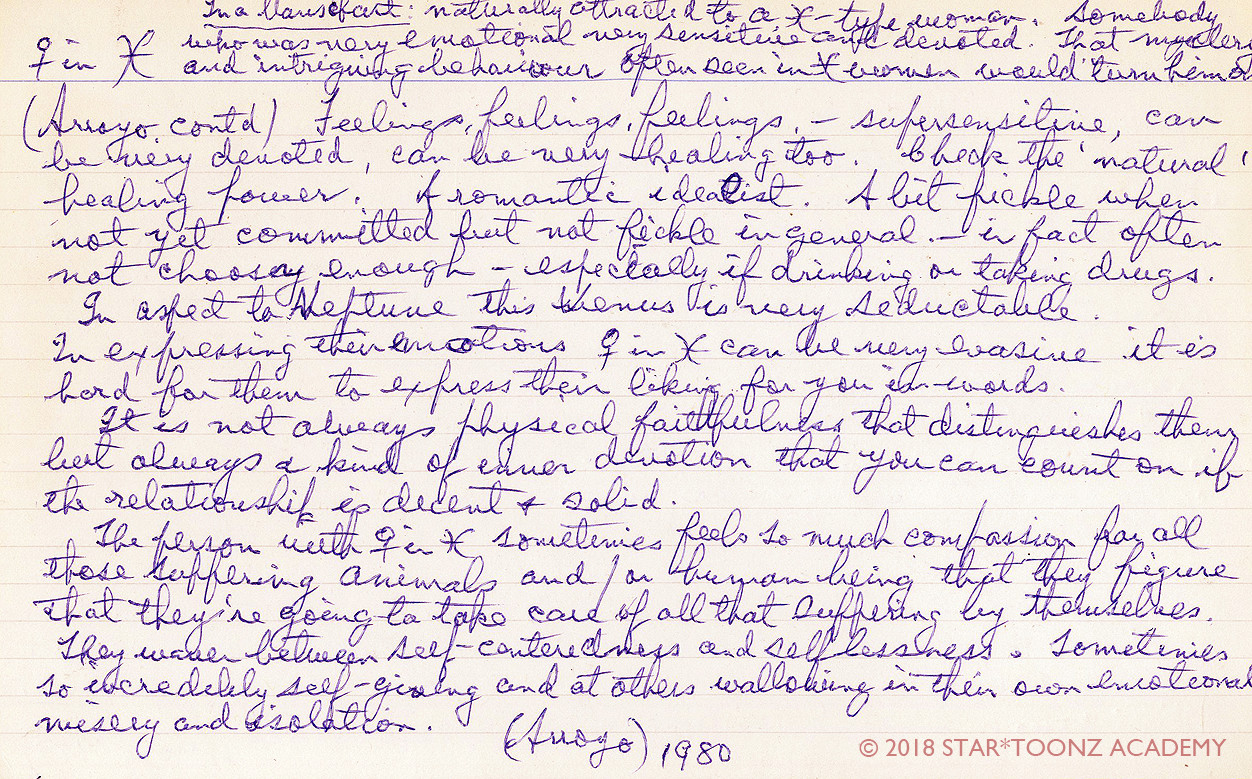 In a man's chart: naturally attracted to a ♓-type woman. Somebody
♀ in ♓ who was very emotional very sensitive and devoted. That
and intriguing behaviour often seen in ♓ women would turn him on
(Arroyo contd) Feelings, feelings, feelings, - supersensitive, can
be very devoted, can be very healing too. Check the 'natural'
healing power. A romantic idealist. A bit fickle when
not yet committed but not fickle in general. - in fact often
not choosey enough - especially if drinking or taking drugs.
In aspect to Neptune this Venus is very seductable.
In expressing their emotions ♀ in ♓ can be very evasive it is
hard for them to express their liking for you in words.
It is not always physical faithfulness that distinguishes them
but always a kind of inner devotion that you can count on if
the relationship is decent & solid.
The person with ♀ in ♓ sometimes feels so much compassion for all
those suffering animals and/or human being that they figure
that they're going to take care of all that suffering by themselves.
They waver between self-centeredness and selflessness. Sometimes
so incredibly self-giving and at others wallowing in their own emotional
misery and isolation.
(Arroyo) 1980
© 2018 STAR*TOONZ ACADEMY